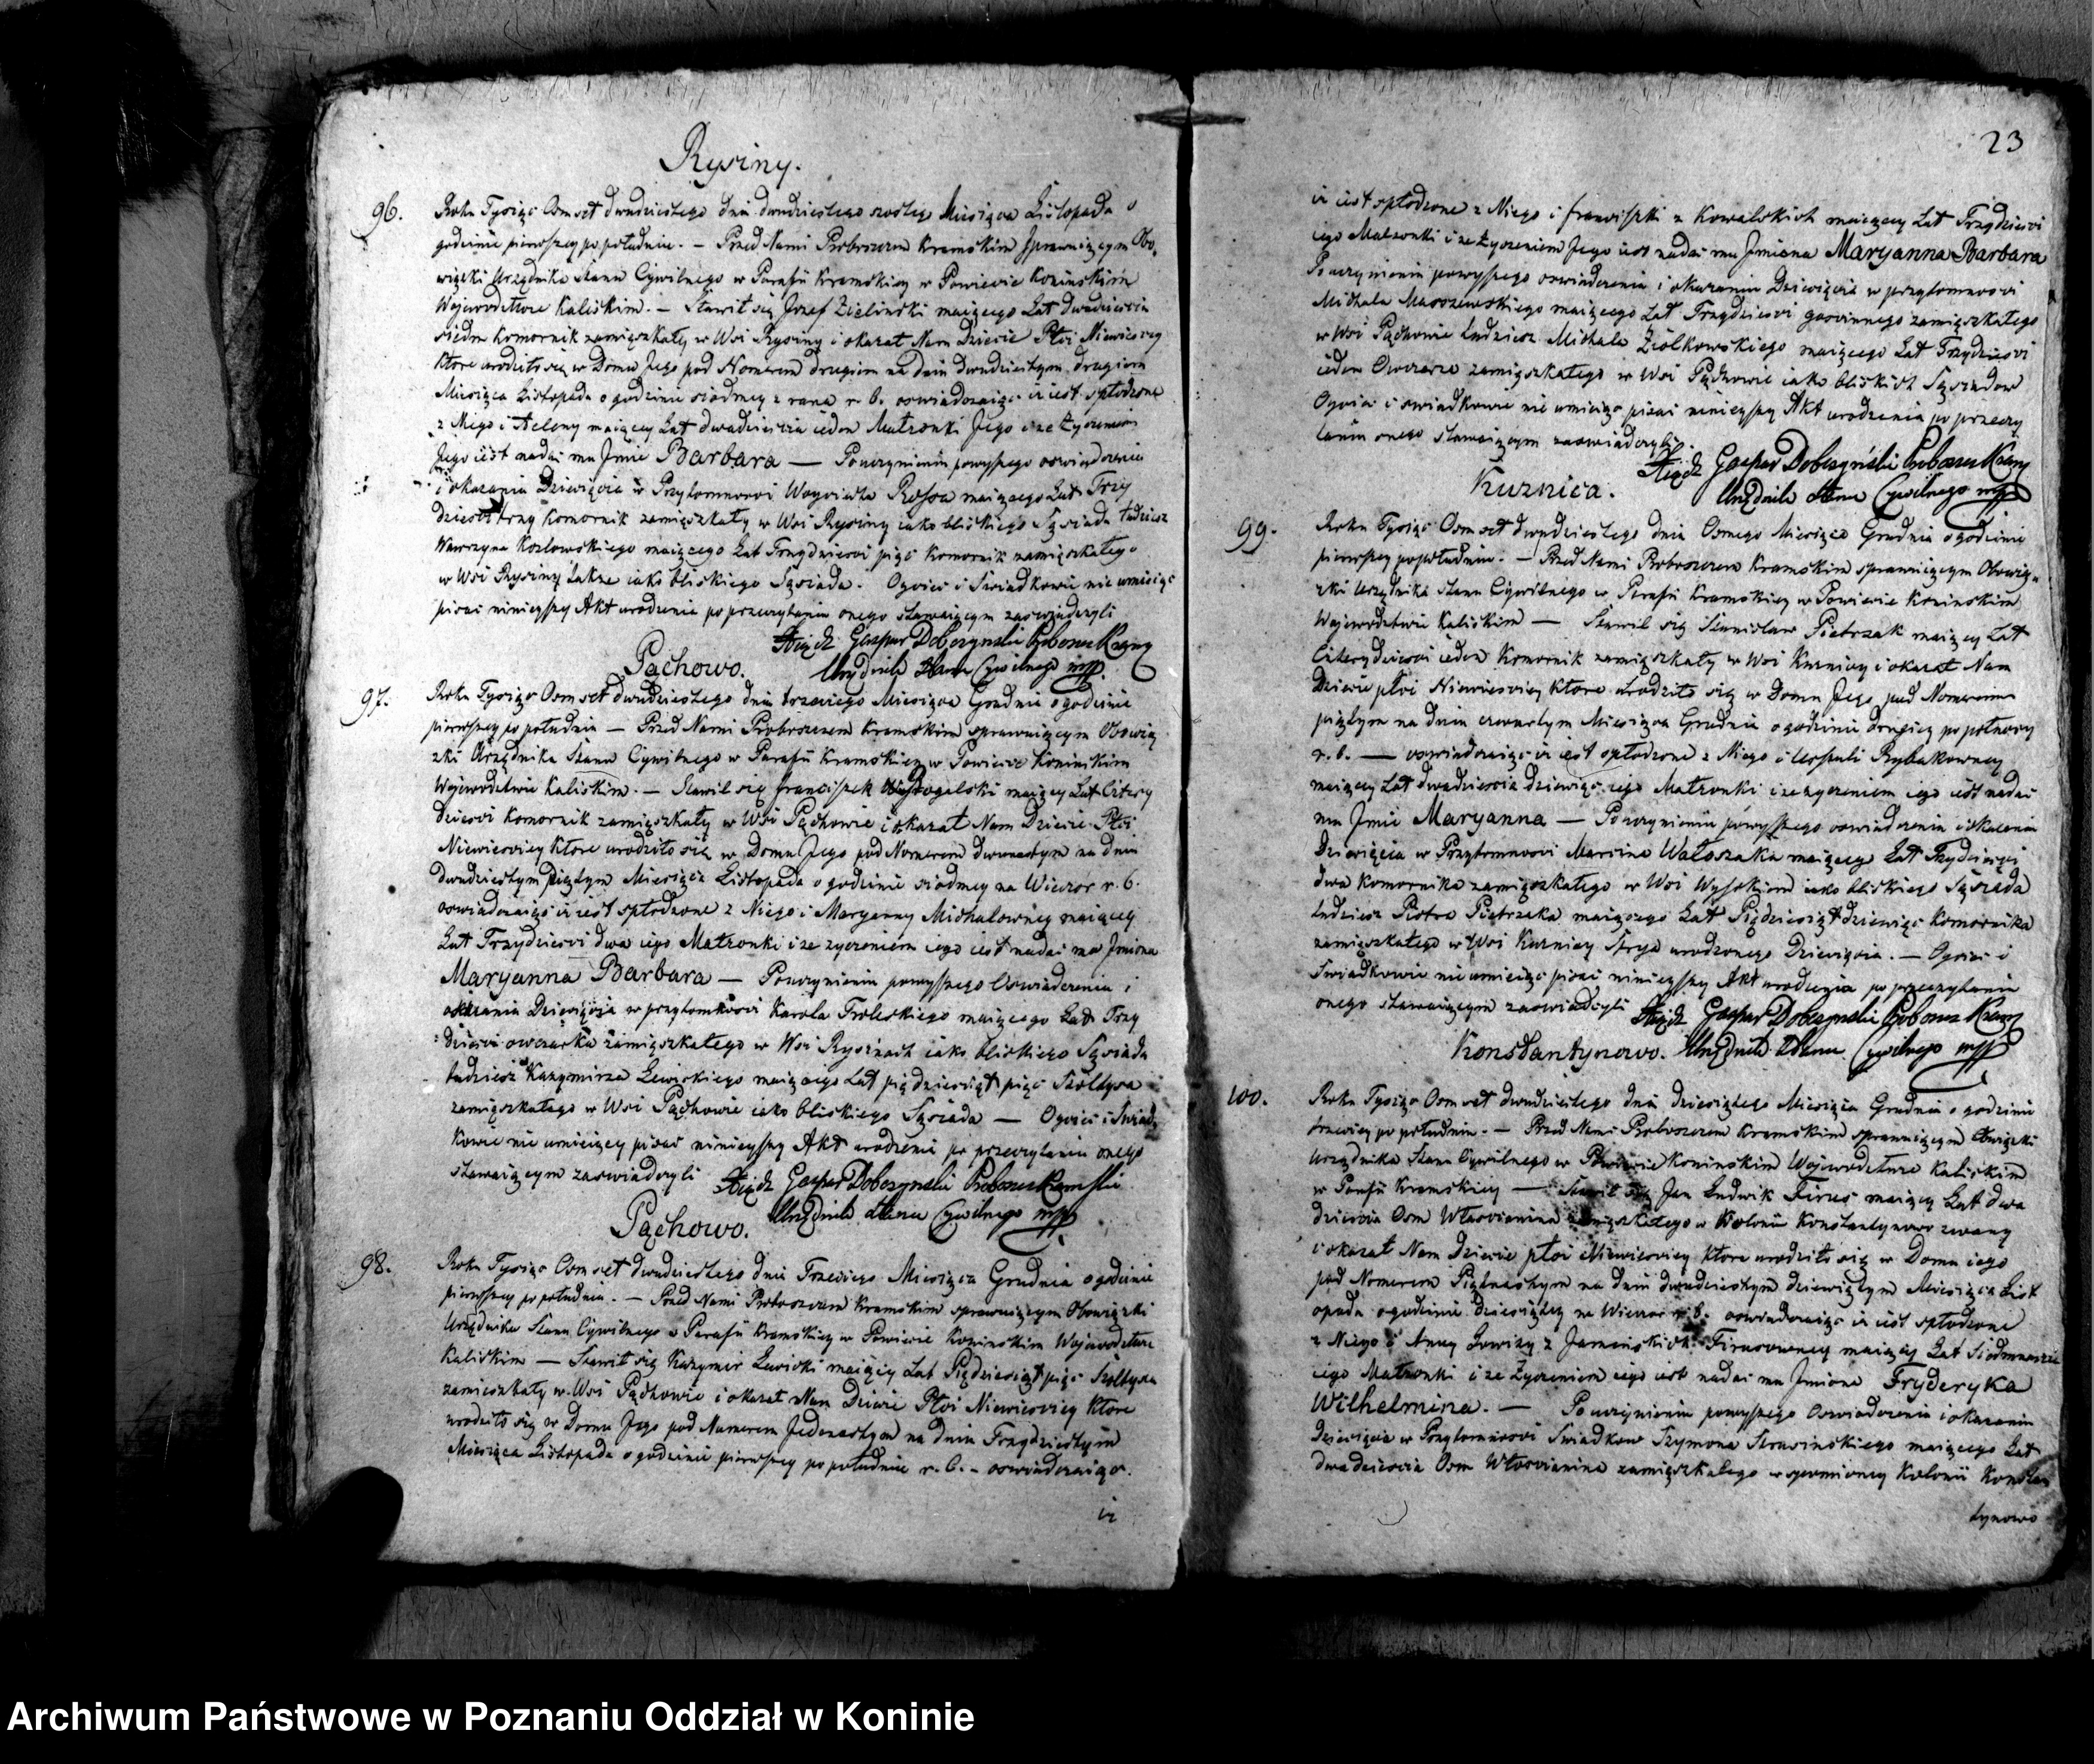 Rysiny.
96. Roku Tysiąc Osmset dwudziestego dnia dwudziestego szostego Miesiąca Listopada o
godzinie pierwszey po południu. — Przed Nami Proboszczem Kramskim sprawuiącym Obo-
wiązki Urzędnika Stanu Cywilnego w Parafii Kramskiey w Powiecie Koninskim
Woiewodztwie Kaliskim. — Stawił się Jozef Zielinski maiącego Lat dwadziescia
siedm Komornik zamięszkały w Wsi Rysiny i okazał Nam Dziecie Płci Niewiesciey
ktore urodziło się w Domu Jego pod Numerem drugim na dniu dwudziestym drugim
Miesiąca Listopada o godzinie siodmey z rana r. b. oswiadczaiąc iż iest spłodzone
z Niego i Heleny maiącey Lat dwadziescia ieden Małżonki Jego i że życzeniem
Jego iest nadać mu Jmie Barbara — Po uczynieniu powyższego oswiadczenia
i okazania Dziewięcia w Przytomnosci Woyciecha Rossa maiącego Lat Trzy
dziesci trzy Komornik zamięszkały w Wsi Rysiny iako bliskiego Sąsiada tudziesz
Wawrzyna Kozłowskiego maiącego Lat Trzydziesci pięć Komornik zamięszkałego
w Wsi Rysiny także iako bliskiego Sąsiada. Oyciec i Swiadkowie nie umieiąc
pisać ninieyszy Akt urodzenia po przeczytaniu onego stawaiącym zaswiadczyli
Xiądz Gaspar Dobczynski Proboszcz Kramy
Urzędnik Stanu Cywilnego mpp.
Pąchowo.
97. Roku Tysiąc Osmset dwudziestego dnia trzeciego Miesiąca Grudnia o godzinie
pierwszey po południu — Przed Nami Proboszczem Kramskim sprawuiącym Obowią
zki Urzędnika Stanu Cywilnego w Parafii Kramskiey w Powiecie Koninskim
Woiewodztwie Kaliskim. — Stawił się Franciszek maiący Lat Cztery
dziesci Komornik zamięszkały w Wsi Pąchowie i okazał Nam Dziecie Płci
Niewiesciey ktore urodziło się w Domu Jego pod Numerem dwunastym na dniu
dwudziestym Piątym Miesiąca Listopada o godzinie siodmey na Wieczor r. b.
oswiadczaiąc iż iest spłodzone z Niego i Maryanny Michałowney maiącey
Lat Trzydziesci dwa iego Małżonki i że życzeniem iego iest nadać mu Jmiona
Maryanna Barbara — Po uczynieniu powyższego Oswiadczenia i
okazania Dziewięcia w przytomnosci Karola maiącego Lat Trzy
dziesci owczarka zamięszkałego w Wsi Rysinach iako bliskiego Sąsiada
tudziesz Kazymirza Lewickiego maiącego Lat pięddziesiąt pięć Szołtysa
zamięszkałego w Wsi Pąchowie iako bliskiego Sąsiada — Oyciec i Swiad
kowie nie umieiący pisać ninieyszy Akt urodzenia po przeczytaniu onego
stawaiącym zaswiadczyli Xiądz Gaspar Dobczynski Proboszcz Kramski
Urzędnik Stanu Cywilnego mpp.
Pąchowo.
98. Roku Tysiąc Osmset dwudziestego dnia Trzeciego Miesiąca Grudnia o godzinie
pierwszey po południu. — Przed Nami Proboszczem Kramskim sprawuiącym Obowiązki
Urzędnika Stanu Cywilnego w Parafii Kramskiey w Powiecie Koninskim Woiewodztwie
Kaliskim — Stawił się Kazymir Lewicki maiący Lat Pięddziesiąt pięć Szołtysa
zamieszkały w Wsi Pąchowie i okazał Nam Dziecie Płci Niewiesciey ktore
urodziło się w Domu Jego pod Numerem Jedenastym na dniu Trzydziestym
Miesiąca Listopada o godzinie pierwszey po południu r. b. — oswiadczaiąc
iż
23
iż iest spłodzone z Niego i Franciszki z Kowalskich maiącey Lat Trzydziesci
iego Małzonki i że życzeniem Jego iest nadać mu Jmiona Maryanna Barbara
Po uczynieniu powyższego oswiadczenia i okazaniu Dziewięcia w przytomnosci
Michała Maoszewskiego maiącego Lat Trzydziesci goscinnego zamięszkałego
w Wsi Pąchowie tudziesz Michała Ziołkowskiego maiącego Lat Trzydziesci
ieden Owczarza zamięszkałego w Wsi Pąchowie iako bliskich Sąsiadow
Oyciec i swiadkowie nie umieiąc pisać ninieyszy Akt urodzenia po przeczy
taniu onego stawaiącym zaswiadczyli.
Xiądz Gaspar Dobczyński Proboszcz Kramy
Urzędnik Stanu Cywilnego mpp
Kuznica.
99. Roku Tysiąc Osmset dwudziestego dnia Osmego Miesiąca Grudnia o godzinie
pierwszey po południu. — Przed Nami Proboszczem Kramskim sprawuiącym Obowią-
zki Urzędnika Stanu Cywilnego w Parafii Kramskiey w Powiecie Koninskim
Woiewodztwie Kaliskim — Stawił się Stanisław Pietrzak maiący Lat
Czterydziesci ieden Komornik zamięszkały w Wsi Kuznicy i okazał Nam
Dziecie płci Niewiesciey ktore urodziło się w Domu Jego pod Numerem
piątym na dniu czwartym Miesiąca Grudnia o godzinie drugiey po połnocy
r. b. — oswiadczaiąc iż iest spłodzone z Niego i Urszuli Rybakowney
maiącey Lat dwadziescia dziewięć iego Małżonki i że życzeniem iego iest nadać
mu Jmie Maryanna — Po uczynieniu powyższego oswiadczenia i okazania
Dziewięcia w Przytomnosci Marcina Wałoszaka maiącego Lat Trzydziesci
dwa Komornika zamięszkałego w Wsi Wysokiem iako bliskiego Sąsiada
tudziesz Piotra Pietrzaka maiącego Lat Pięddziesiąt dziewięć Komornika
zamięszkałego w Wsi Kuznicy Stryia urodzonego Dziewięcia. — Oyciec i
Swiadkowie nie umieiąc pisać ninieyszy Akt urodzenia po przeczytaniu
onego stawaiącym zaswiadczyli Xiądz Gaspar Dobczynski Proboszcz Kramy
Konstantynowo. Urzędnik Stanu Cywilnego mpp
100. Roku Tysiąc Osmset dwudziestego dnia dziesiątego Miesiąca Grudnia o godzinie
trzeciey po południu. — Przed Nami Proboszczem Kramskim sprawuiącym Obowiązki
Urzędnika Stanu Cywilnego w Powiecie Koninskim Woiewodztwie Kaliskim
w Parafii Kramskiey — Stawił się Jan Ludwik Firus maiący Lat dwa
dziescia Osm Włoscianina zamięszkałego w Kolonii Konstantynowo zwany
i okazał Nam Dziecie płci Niewiesciey ktore urodziło się w Domu iego
pod Numerem Piętnastym na dniu dwudziestym dziewiątym Miesiąca List
opada o godzinie dziesiątey na Wieczor r. b. oswiadczaiąc iż iest spłodzone
z Niego i Anny Lowizy z Firusowney maiącey Lat Siedmnascie
iego Małżonki i że życzeniem iego iest nadać mu Jmiona Fryderyka
Wilhelmina. — Po uczynieniu powyższego Oswiadczenia i okazaniu
Dziewięcia w Przytomnosci Swiadkow Szymona maiącego Lat
dwadziescia Osm Włoscianina zamięszkałego wspomnioney Kolonii Konstan
tynowo
Archiwum Państwowe w Poznaniu Oddział w Koninie